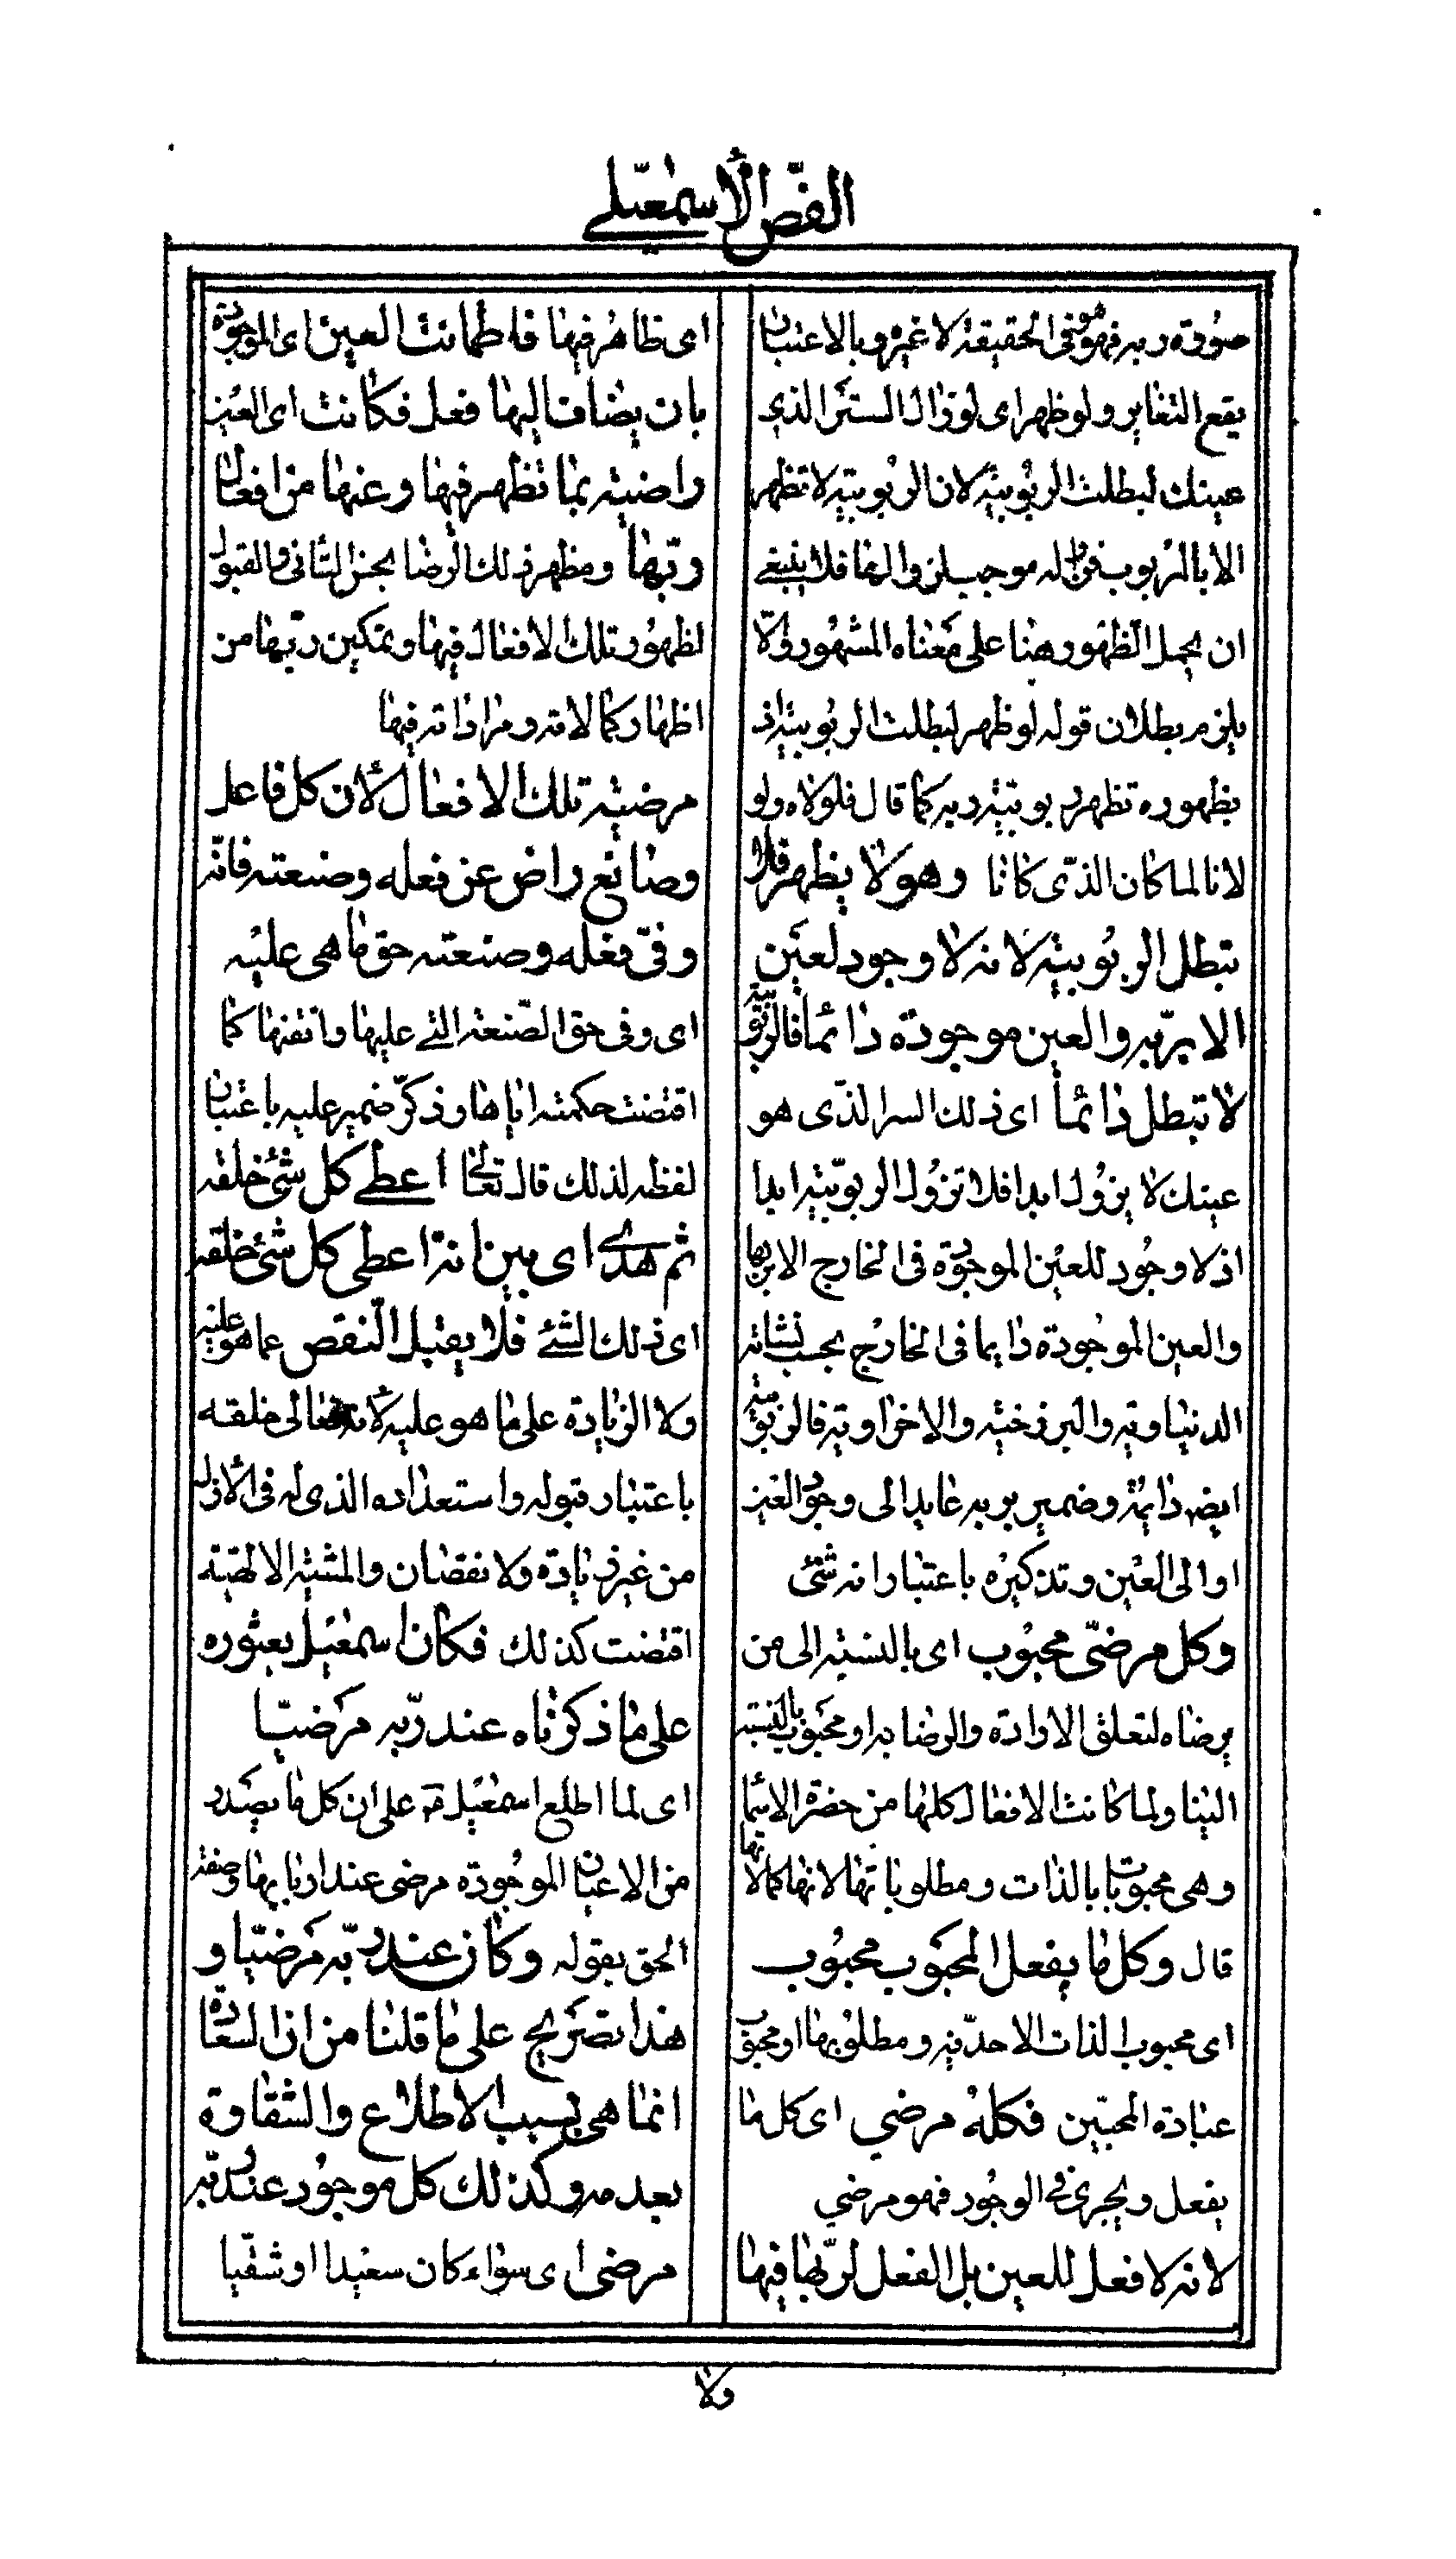 الفصّ الأسمعيلي
صورة ربه فهو هو فى الحقيقة لا غيره وبالاعتبار
يقع التغاير ولو ظهر اى لو زال الستر الذي
عينك لبطلت الربوبية لان الربوبية لا تظهر
الا بالمربوب فزواله موجب لزوالها فلا ينبغي
ان يحمل الظهور هنا على معناه المشهور والّا
يلزم بطلان قوله لو ظهر لبطلت الربوبية اذ
بظهوره تظهر ربوبيّة ربه كما قال فلولاه ولو
لانا لما كان الذّى كانا وهو لا يظهر فلا
تبطل الربوبية لانه لا وجود لعين
الا بربّه والعين موجودة دائما فالربوبية
لا تبطل دائما اى ذلك السر الذّى هو
عينك لا يزول ابدا فلا تزول الربوبيّة ابدا
اذ لا وجود للعين الموجودة فى الخارج الا بربها
والعين الموجودة دايما فى الخارج بحسب نشاته
الدنياوية والبرزخية والاخراوية فالربوبية
ايض دايمة وضمير بربه عايد الى وجود العين
او الى العين وتذكيره باعتبار انه شئ
وكل مرضىّ محبوب اى بالنسبة الى من
يرضاه لتعلق الارادة والرضا به او محبوب بالنسبة
الينا ولما كانت الافعال كلها من حضرة الاسما
وهى محبوبات بالذات ومطلوباتها لانها كمالاتها
قال وكل ما يفعل المحبوب محبوب
اى محبوب الذات الاحدّية ومطلوبها او محبوب
عبادة المحبّين فكله مرضي اى كل ما
يفعل ويجرى في الوجود فهو مرضي
لانه لا فعل للعين بل الفعل لربّها فيها
اى ظاهر فيها فاطمانت العين اى الموجودة
بان يضاف اليها فعل فكانت اى العين
راضية بما تظهر فيها وعنها من افعال
ربّها ومظهر ذلك الرضا بحسن التأنى والقبول
لظهور تلك الافعال فيها وتمكين ربّها من
اظهار كمالاته ومراداته فيها
مرضية تلك الافعال لأن كل فاعل
وصانع راض عن فعله وصنعته فانّه
وفىّ فعله وصنعته حق ما هى عليه
اى وفى حق الصّنعة التي عليها واتقنها كما
اقتضت حكمته اياها وذكّر ضمير عليه باعتبار
لفظه لذلك قال تعالى أعطى كل شئ خلقه
ثم هدى اى بين انه اعطى كل شئ خلقه
اى ذلك الشئ فلا يقبل النقص عما هو عليه
ولا الزيادة على ما هو عليه لأنه تعالى خلقه
باعتبار قبوله واستعداده الذى له فى الأزل
من غير زيادة ولا نقصان والمشية الالهية
اقتضت كذلك فكان اسمعيل بعثوره
على ما ذكرناه عند ربّه مرضيّا
اى لما اطلع اسمعيل على ان كل ما يصدر
من الاعيان الموجودة مرضى عند اربابها وصفه
الحق بقوله وكان عند ربّه مرضيّا و
هذا تصريح على ما قلنا من ان السعادة
انما هى بسبب الاطلاع والشقاوة
بعدمه وكذلك كل موجود عند ربّه
مرضى اى سواء كان سعيدا او شقيا
ولا